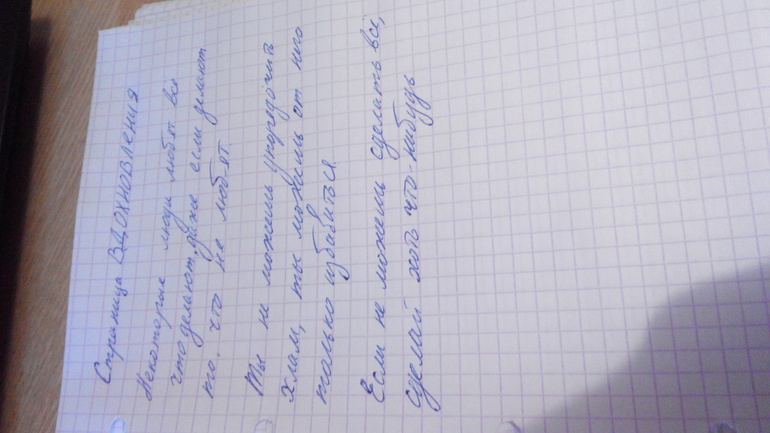 Страница ВДОХНОВЛЕНИЯ
Некоторые люди любят всё
что делают, даже если делают
то, что не любят.
Ты не можешь упорядочить
хлам, ты можешь от него
только избавиться.
Если не можешь сделать всё,
сделай хоть что-нибудь